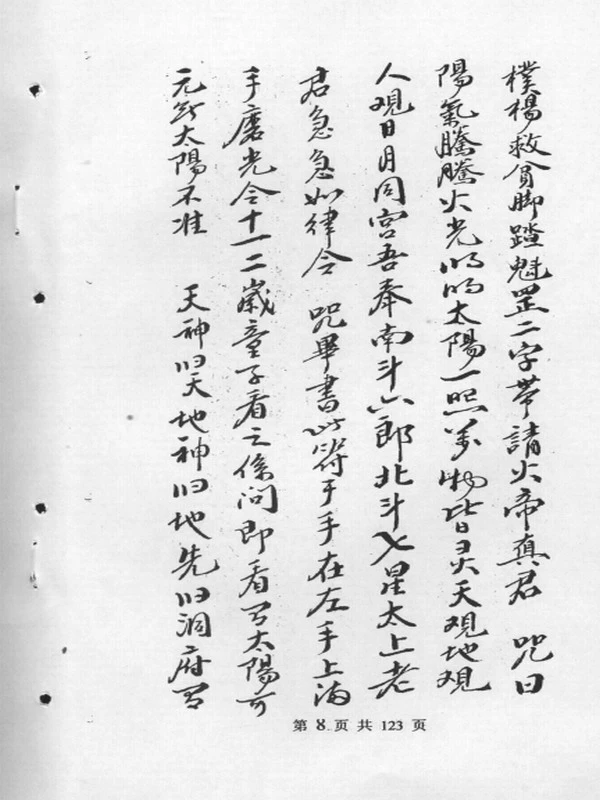 樸楊救貧脚踏魁罡二字帶請火帝真君　咒曰
陽氣騰騰火光明明太陽一照萬物皆灵天观地观
人观日月同宫吾奉南斗六郎北斗七星太上老
君急急如律令　咒畢書此符于手在左手上海
手磨光令十一二歲童子看之係问即看子太陽可
元紗太陽不准　天神归天地神归地先归洞府
第 8 页 共 123 页